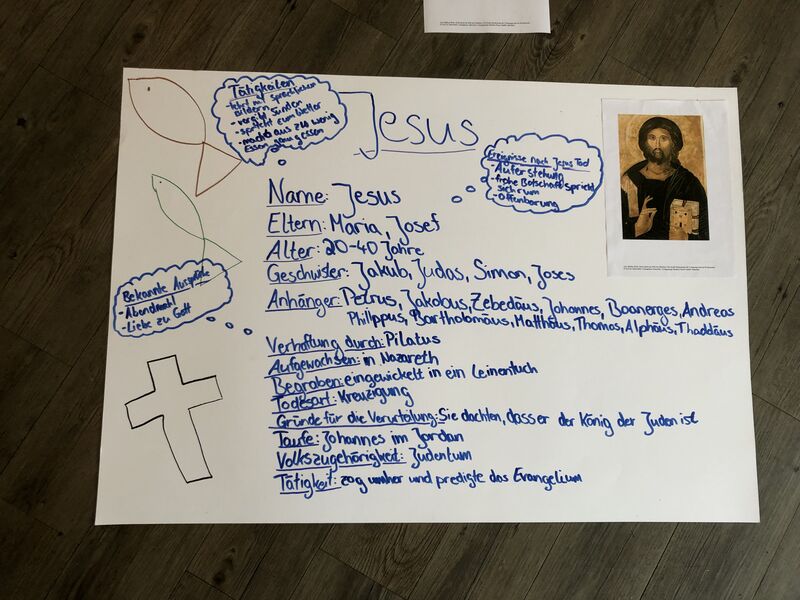 Jesus
Tätigkeiten
-lehrt mit sprachlichen
Bildern
-vergibt Sünder
-spricht zum Wetter
-macht aus zu wenig
Essen genug essen
Ereignisse nach Jesus Tod
-Auferstehung
-frohe Botschaft spricht
sich rum
-Offenbarung
Name: Jesus
Eltern: Maria, Josef
Alter: 20-40 Jahre
Geschwister: Jakub, Judas, Simon, Joses
Anhänger: Petrus, Jakobus, Zebedäus, Johannes, Boanerges, Andreas
Philippus, Bartholomäus, Matthäus, Thomas, Alphäus, Thaddäus
Bekannte Aussprüche
-Abendmahl
-Liebe zu Gott
Verhaftung durch: Pilatus
Aufgewachsen: in Nazareth
Begraben: eingewickelt in ein Leinentuch
Todesart: Kreuzigung
Gründe für die Verurteilung: Sie dachten, dass er der König der Juden ist
Taufe: Johannes im Jordan
Volkszugehörigkeit: Judentum
Tätigkeit: zog umher und predigte das Evangelium